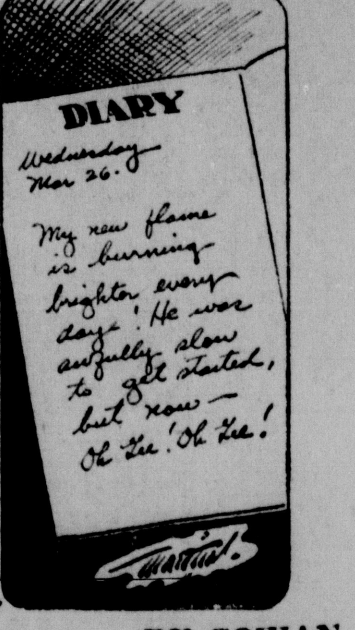 DIARY
Wednesday
Mar 26.
My new flame
is burning
brighter every
day! He was
awfully slow
to get started,
but now —
Oh Gee! Oh Gee!
Martin